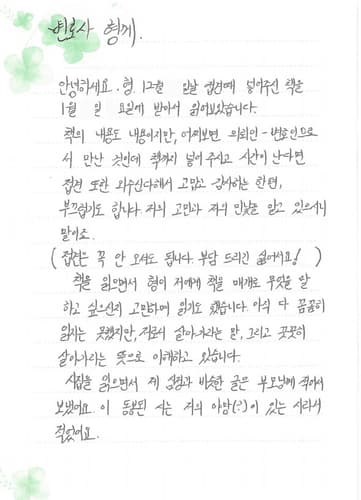 변호사 형께.
안녕하세요. 형, 12월 일날 접견때 넣어주신 책을
1월 일 요일에 받아서 읽어보았습니다.
책의 내용도 내용이지만, 어찌보면 의뢰인-변호인으로
서 만난 것인데 책까지 넣어 주시고 시간이 난다면
접견 또한 와주신다해서 고맙고 감사하는 한편,
부끄럽기도 합니다. 저의 고민과 저의 민낯을 알고 있으시니
말이죠.
(접견은 꼭 안 오셔도 됩니다. 부담 드리긴 싫어서요! )
책을 읽으면서 형이 저에게 책을 매개로 무엇을 말
하고 싶으신지 고민하며 읽기도 했습니다. 아직 다 꼼꼼히
읽지는 못했지만, 저로서 살아가라는 말, 그리고 꿋꿋이
살아가라는 뜻으로 이해하고 있습니다.
시집을 읽으면서 제 심정과 비슷한 글은 부모님께 적어서
보냈어요. 이 동봉된 시는 저의 야망(?)이 있는 시라서
적었어요.